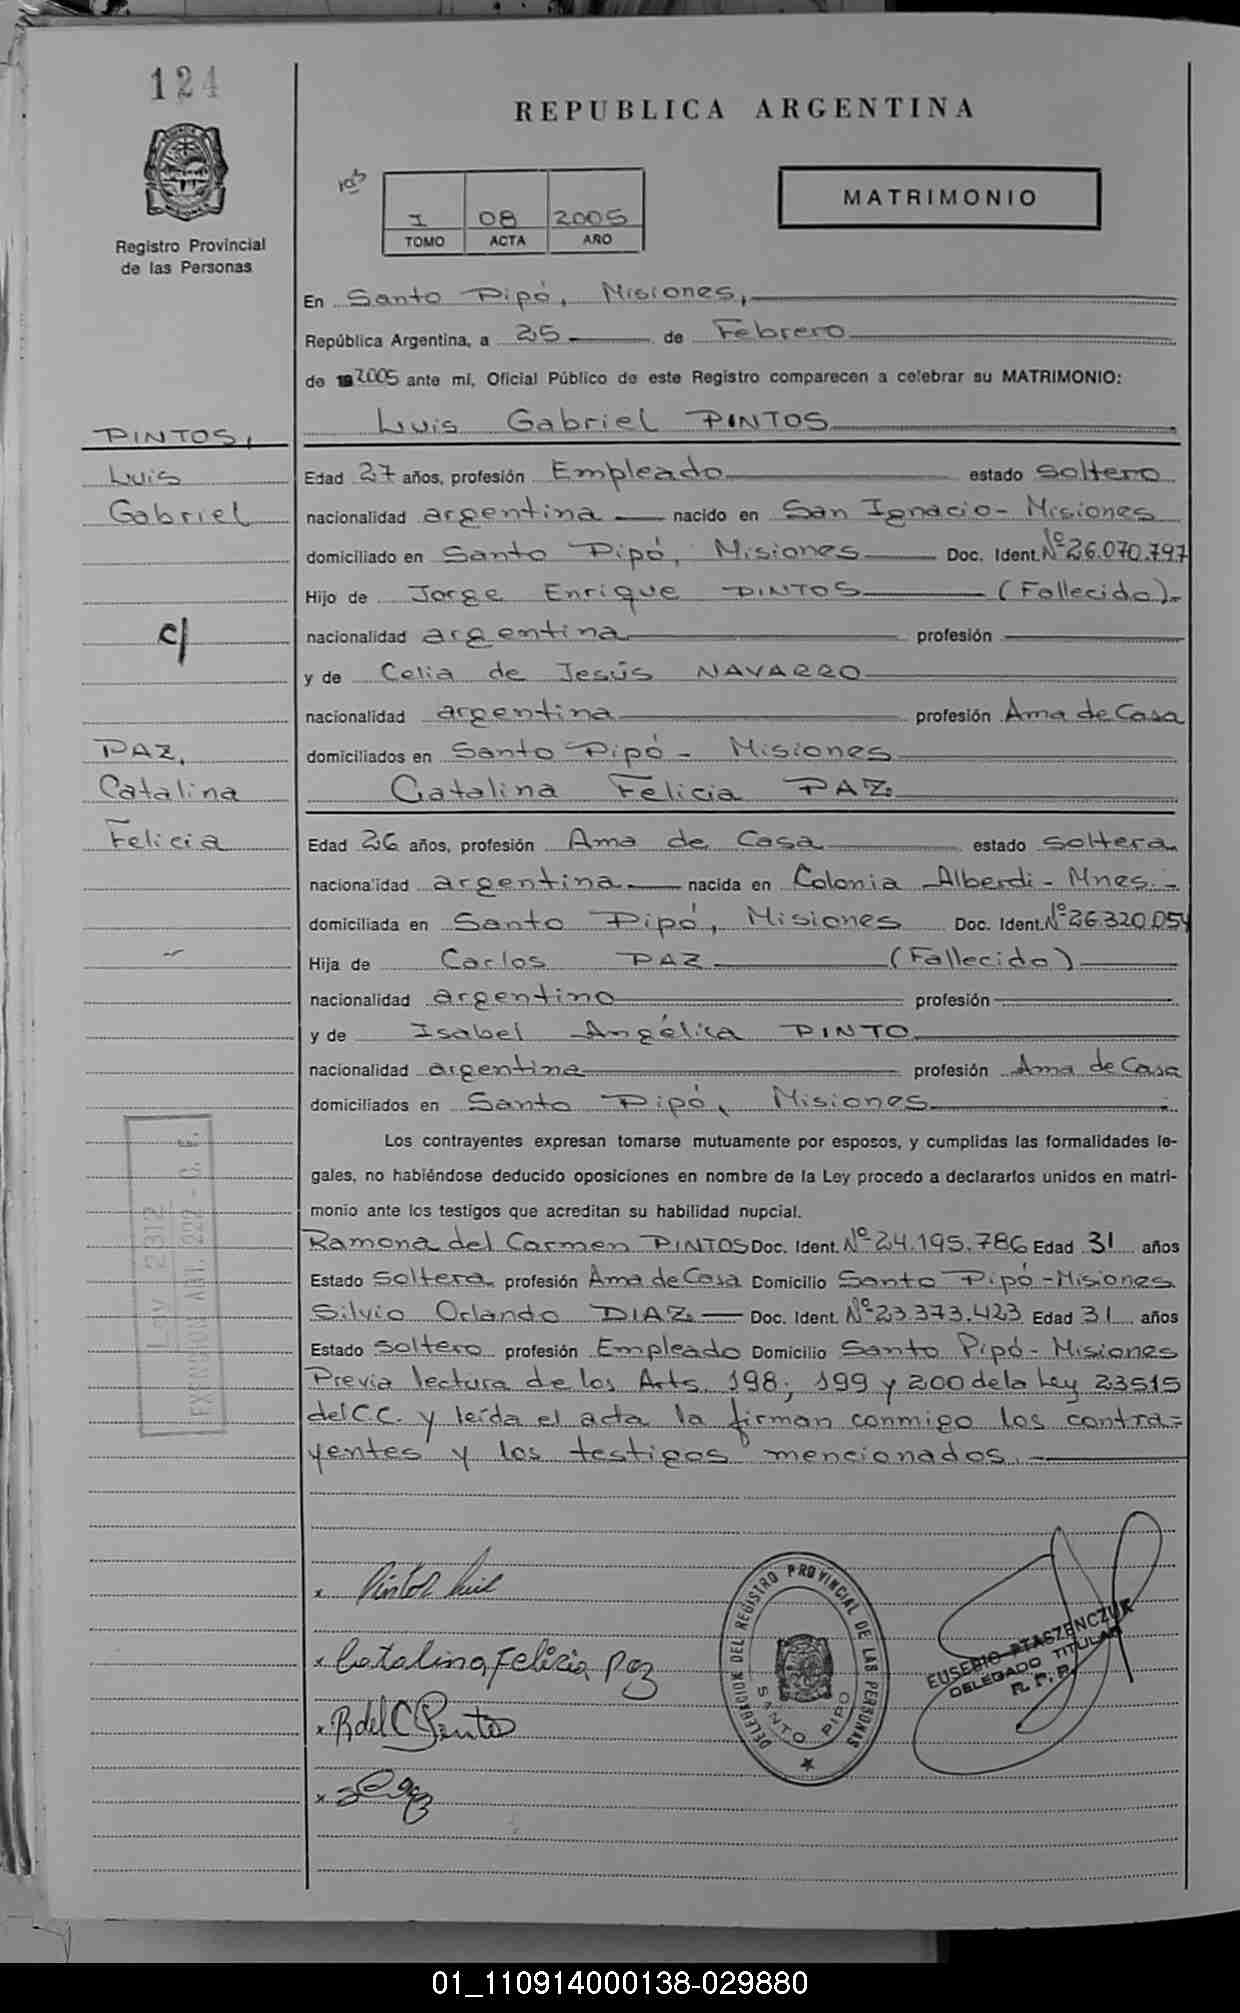 124
REPUBLICA ARGENTINA
MATRIMONIO
I 08 2005
TOMO ACTA AÑO
Registro Provincial
de las Personas
En Santo Pipó, Misiones,
República Argentina, a 25 de Febrero
de 2005 ante mí, Oficial Público de este Registro comparecen a celebrar su MATRIMONIO:
PINTOS,
Luis
Gabriel
c/
PAZ,
Catalina
Felicia
Luis Gabriel PINTOS
Edad 27 años, profesión Empleado estado soltero
nacionalidad argentina nacido en San Ignacio - Misiones
domiciliado en Santo Pipó, Misiones Doc. Ident. Nº 26.070.797
Hijo de Jorge Enrique PINTOS (Fallecido)-
nacionalidad argentina profesión
y de Celia de Jesús NAVARRO
nacionalidad argentina profesión Ama de Casa
domiciliados en Santo Pipó - Misiones
Catalina Felicia PAZ
Edad 26 años, profesión Ama de Casa estado soltera
nacionalidad argentina nacida en Colonia Alberdi - Mnes.-
domiciliada en Santo Pipó, Misiones Doc. Ident. Nº 26.320.054
Hija de Carlos PAZ (Fallecido)
nacionalidad argentino profesión
y de Isabel Angélica PINTO
nacionalidad argentina profesión Ama de Casa
domiciliados en Santo Pipó, Misiones
Los contrayentes expresan tomarse mutuamente por esposos, y cumplidas las formalidades le-
gales, no habiéndose deducido oposiciones en nombre de la Ley procedo a declararlos unidos en matri-
monio ante los testigos que acreditan su habilidad nupcial.
Ramona del Carmen PINTOS Doc. Ident. Nº 24.195.786 Edad 31 años
Estado Soltera profesión Ama de Casa Domicilio Santo Pipó - Misiones
Silvio Orlando DIAZ Doc. Ident. Nº 23.373.423 Edad 31 años
Estado Soltero profesión Empleado Domicilio Santo Pipó - Misiones
Previa lectura de los Arts. 198; 199 y 200 de la Ley 23515
del C.C. y leída el acta la firman conmigo los contra-
yentes y los testigos mencionados.
LEY 2312
EXENSION ART. 222 - C. F.
x Pintos Luis
x Catalina Felicia Paz
x R del C Pintos
x
DELEGACION DEL REGISTRO PROVINCIAL DE LAS PERSONAS
SANTO PIPO
EUSEBIO PTASZENCZUK
DELEGADO TITULAR
R. P. P.
01_110914000138-029880